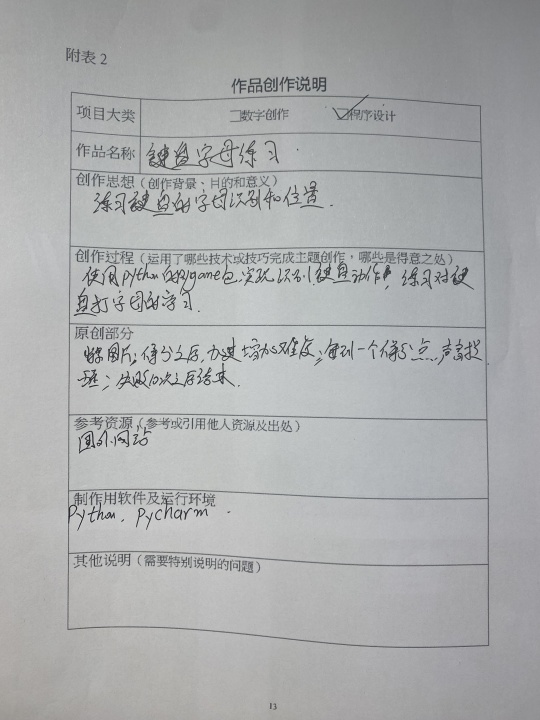 附表 2
作品创作说明
项目大类 □数字创作 ☑程序设计
作品名称 键盘字母练习
创作思想（创作背景、目的和意义）
练习键盘的字母识别和位置.
创作过程（运用了哪些技术或技巧完成主题创作，哪些是得意之处）
使用python的Pygame包,实现识别键盘动作,练习对键
盘打字母的学习.
原创部分
图片;得分之后,加速增加难度;每到一个得分点,声音提
醒;失败10次之后结束.
参考资源（参考或引用他人资源及出处）
国外网站
制作用软件及运行环境
Python, Pycharm.
其他说明（需要特别说明的问题）
13